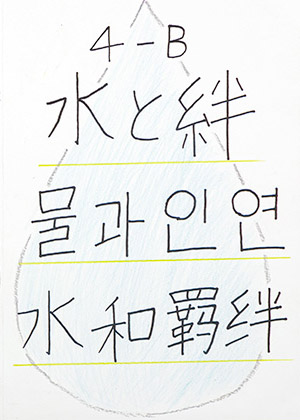 4-B
水と絆
물과인연
水和羁绊